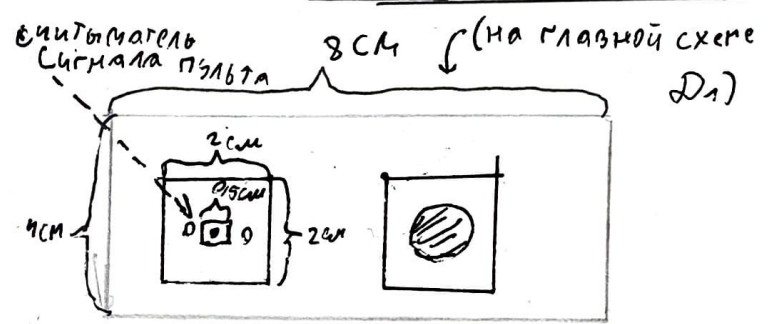 считыматель
сигнала пульта
8 см
(на главной схеме
D1)
2 см
0,5 см
4 см
2 см